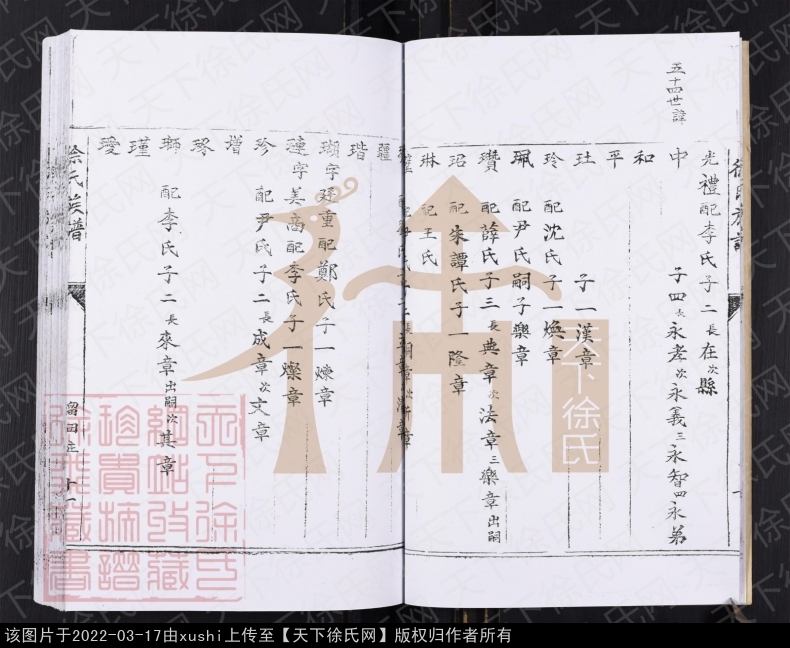 五十四世諱
徐氏族譜
光禮配李氏子二長在次縣
中 子四長永孝次永義三永智四永弟
和
平
玨 子一漢章
玲 配沈氏子一煥章
珮 配尹氏嗣子樂章
瓚 配薛氏子三長典章次法章三樂章出嗣
玿 配朱譚氏子一隆章
琳 配王氏
疆
琩
瑚字廷重配鄭氏子一煉章
璉字美高配李氏子一燦章
珍 配尹氏子二長成章次文章
增
琢
瑯 配李氏子二長來章出嗣次其章
瑾
璦
徐氏族譜
留田庄
十一
天下徐氏
天下徐氏網
天下徐氏
該图片于2022-03-17由xushi上传至【天下徐氏网】版权归作者所有